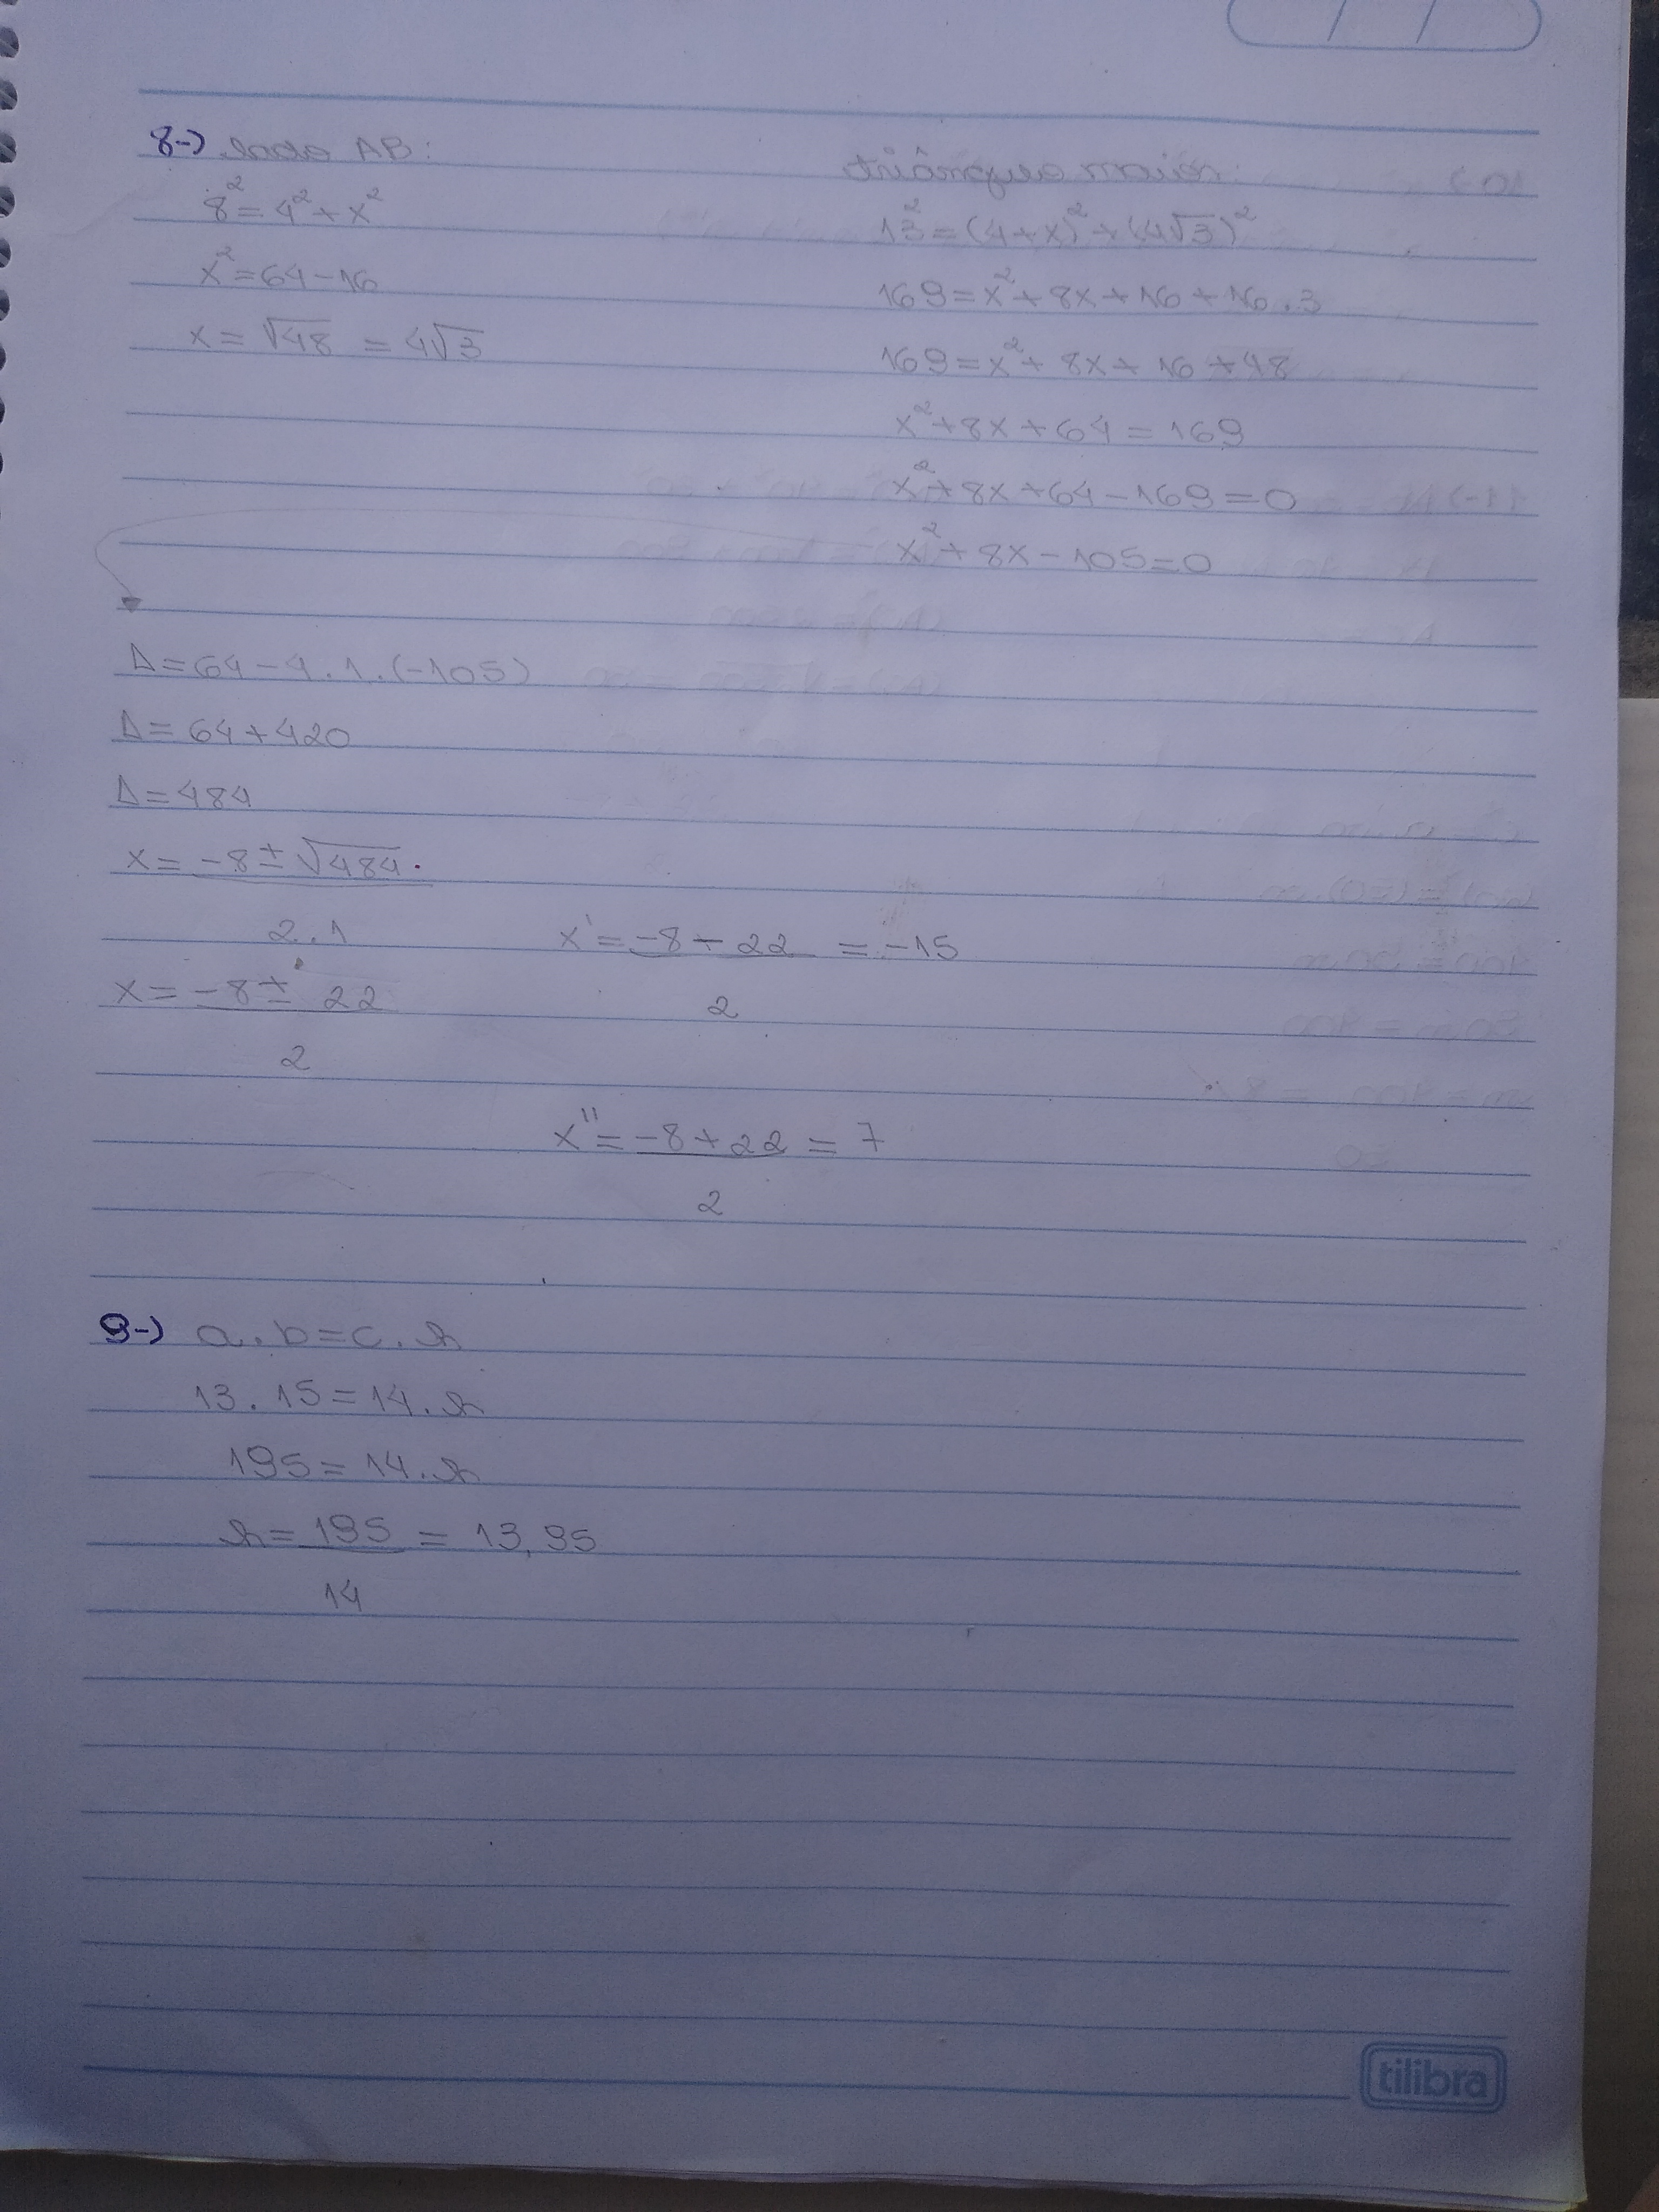 8-) lado AB:
8² = 4² + x²
x² = 64 - 16
x = √48 = 4√3
triângulo maior:
13² = (4+x)² + (4√3)²
169 = x² + 8x + 16 + 16 . 3
169 = x² + 8x + 16 + 48
x² + 8x + 64 = 169
x² + 8x + 64 - 169 = 0
x² + 8x - 105 = 0
Δ = 64 - 4 . 1 . (-105)
Δ = 64 + 420
Δ = 484
x = -8 ± √484
2 . 1
x = -8 ± 22
2
x' = -8 - 22 = -15
2
x'' = -8 + 22 = 7
2
9-) a . b = c . h
13 . 15 = 14 . h
195 = 14 . h
h = 195 = 13,95
14
tilibra